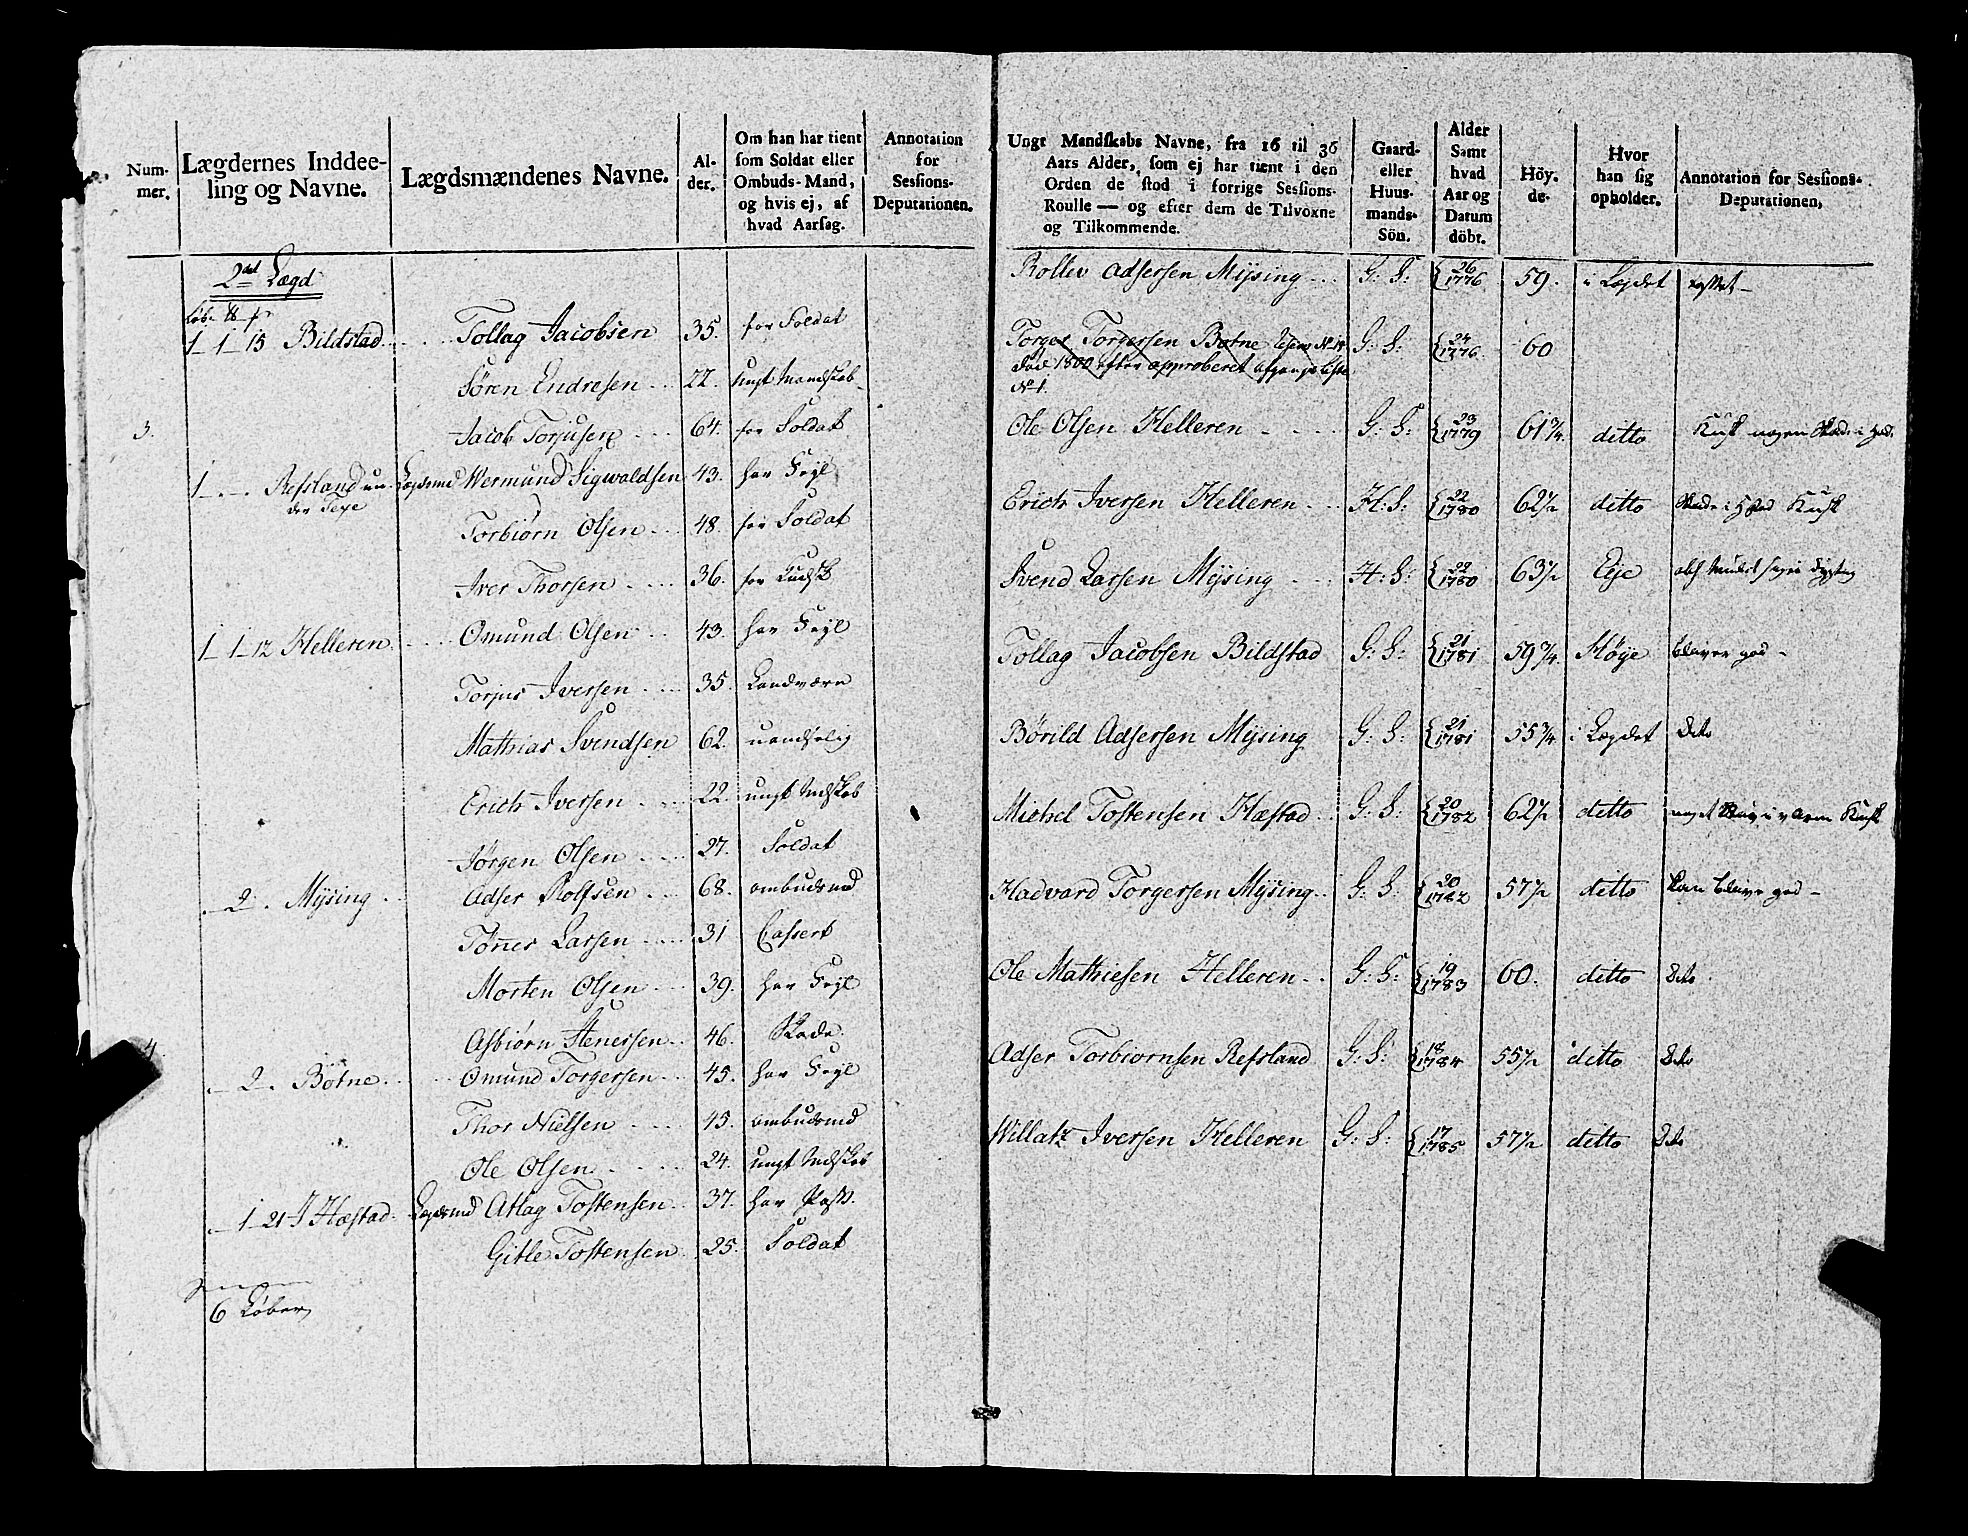 Num-
mer.
Lægdernes Inddee-
ling og Navne.
Lægdsmændenes Navne.
Al-
der.
Om han har tient
som Soldat eller
Ombuds-Mand,
og hvis ej, af
hvad Aarsag.
Annotation
for
Sessions-
Deputationen.
2det Lægd
1 - 1 - 15 Bildstad
Tollag Jacobsen 35. for Soldat
Søren Endresen 22. ungt Mandskab
3. Jacob Torjusen 64. for Soldat
1 - . - Refsland un- Lægdsmd Wermund Sigwaldsen 43. har Fejl
der Texe
Torbiørn Olsen 48. for Soldat
Iver Thorsen 36. for Kudsk
1 - 1 - 12 Helleren Omund Olsen 43. har Fejl
Torjus Iversen 35. Landværn
Mathias Svendsen 62.
Erich Iversen 22. ungt Mdskab
Jørgen Olsen 27. Soldat
- 2. Mysing Adser Rolfsen 68. ombudsmd
Tønes Larsen 31 Cassert
Morten Olsen 39. har Fejl
4. Asbiørn Stenersen 46. Skade
- 2. Bøtne Omund Torgersen 45. har Fejl
Thor Nielsen 45. ombudsmd
Ole Olsen 24. ungt Mdskab
- 1 - 21 Hæstad Lægdsmd Atlag Tostensen 37. har Pass.
Gitle Tostensen 25. Soldat
6 Løber
Ungt Mandskabs Navne, fra 16 til 36
Aars Alder, som ej har tient i den
Orden de stod i forrige Sessions-
Roulle — og efter dem de Tilvoxne
og Tilkommende.
Gaard-
eller
Huus-
mands-
Sön.
Alder
Samt
hvad
Aar og
Datum
döbt.
Höy-
de.
Hvor
han sig
opholder.
Annotation for Sessions-
Deputationen.
Rollev Adsersen Mysing G: S: 26 1776 59. i Lægdet
Torger Torgersen Botne G: S: 24 1776 60
død 1800 efter approberet afgangs liste
No 1.
Ole Olsen Helleren G: S: 23 1779 61 3/4. ditto
Erich Iversen Helleren H: S: 22 1780 62 1/2 ditto
Svend Larsen Mysing H: S: 22 1780 63 1/2 Eje
Tollag Jacobsen Bildstad G: S: 21 1781 59 3/4. Høye bliver god
Børild Adsersen Mysing G: S: 21 1781 55 3/4 i Lægdet Dito
Michel Tostensen Hæstad G: S: 20 1782 62 1/2 ditto
Hadvard Torgersen Mysing G: S: 20 1782 57 1/2 ditto kan blive god
Ole Mathiesen Helleren G: S: 19 1783 60. ditto Dito
Adser Torbiornsen Refsland G: S: 18 1784 55 1/2 ditto Dito
Willatz Iversen Helleren G: S: 17 1785 57 1/2 ditto Dito